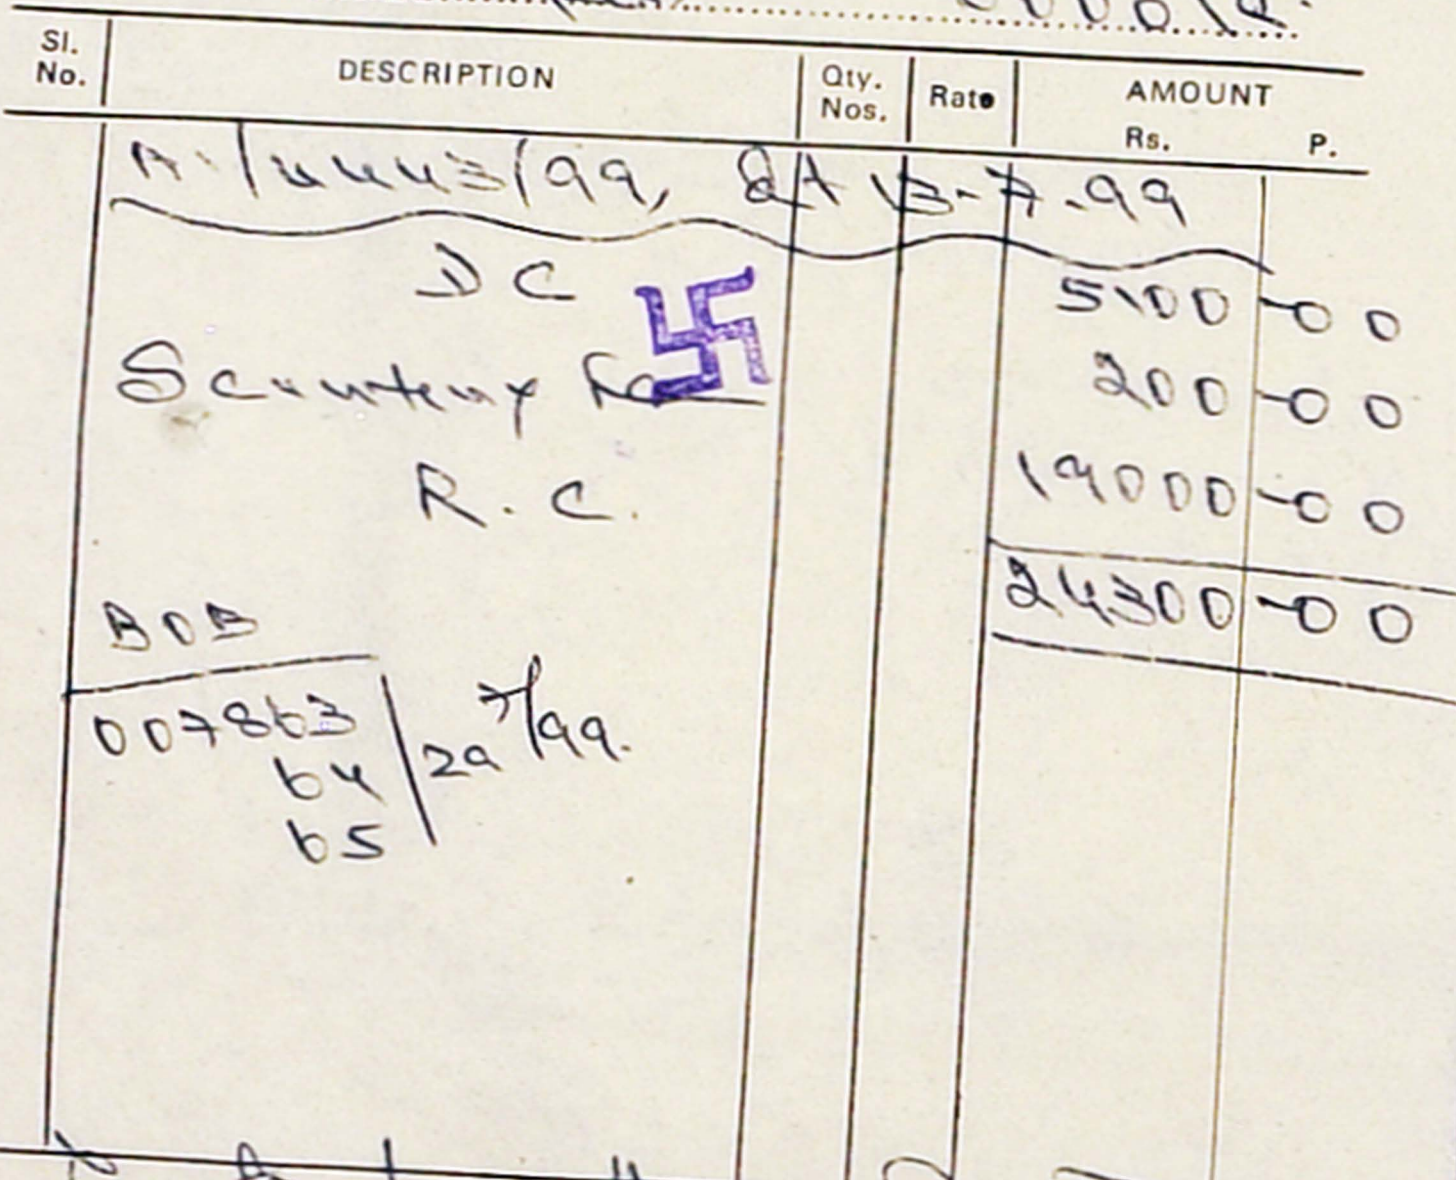 Sl. No. DESCRIPTION Qty. Nos. Rate AMOUNT Rs. P.
A. /4443/99, Dt 13-7-99
DC 5100-00
Scrunteny Fee 200-00
R.C. 19000-00
24300-00
BOB
007863
64 29/7/99.
65